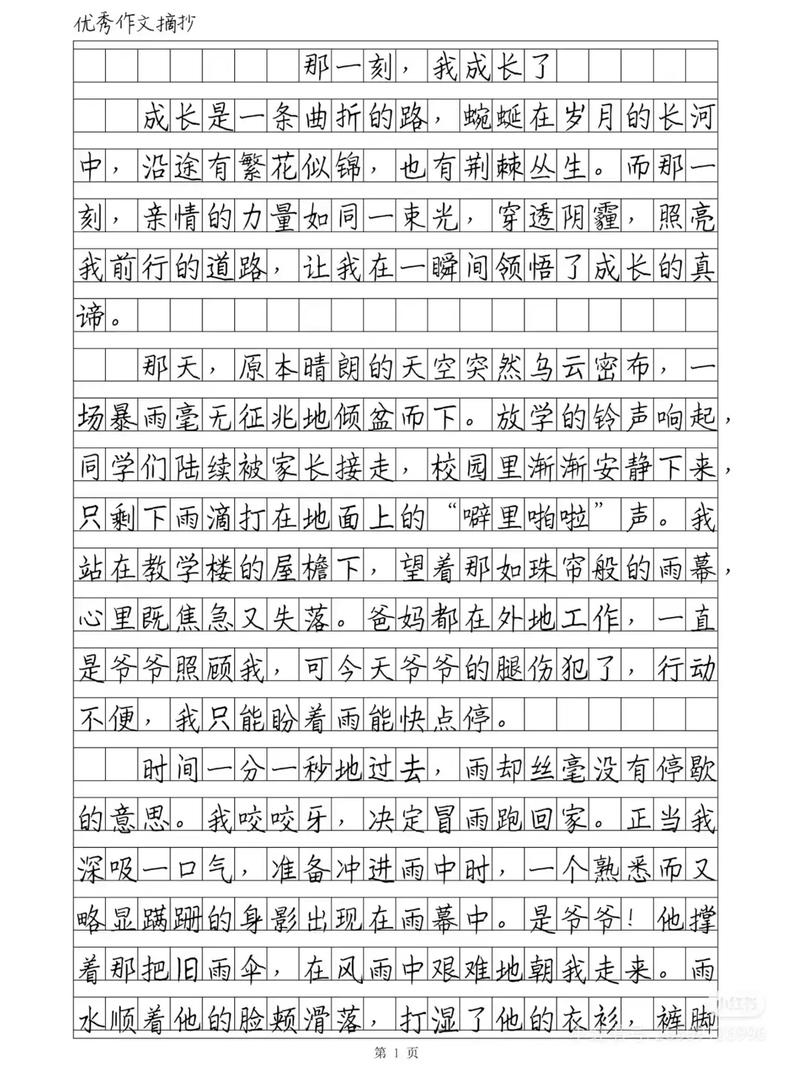 优秀作文摘抄
那一刻，我成长了
成长是一条曲折的路，蜿蜒在岁月的长河
中，沿途有繁花似锦，也有荆棘丛生。而那一
刻，亲情的力量如同一束光，穿透阴霾，照亮
我前行的道路，让我在一瞬间领悟了成长的真
谛。
那天，原本晴朗的天空突然乌云密布，一
场暴雨毫无征兆地倾盆而下。放学的铃声响起，
同学们陆续被家长接走，校园里渐渐安静下来，
只剩下雨滴打在地面上的“噼里啪啦”声。我
站在教学楼的屋檐下，望着那如珠帘般的雨幕，
心里既焦急又失落。爸妈都在外地工作，一直
是爷爷照顾我，可今天爷爷的腿伤犯了，行动
不便，我只能盼着雨能快点停。
时间一分一秒地过去，雨却丝毫没有停歇
的意思。我咬咬牙，决定冒雨跑回家。正当我
深吸一口气，准备冲进雨中时，一个熟悉而又
略显蹒跚的身影出现在雨幕中。是爷爷！他撑
着那把旧雨伞，在风雨中艰难地朝我走来。雨
水顺着他的脸颊滑落，打湿了他的衣衫，裤脚
小红书
第 1 页